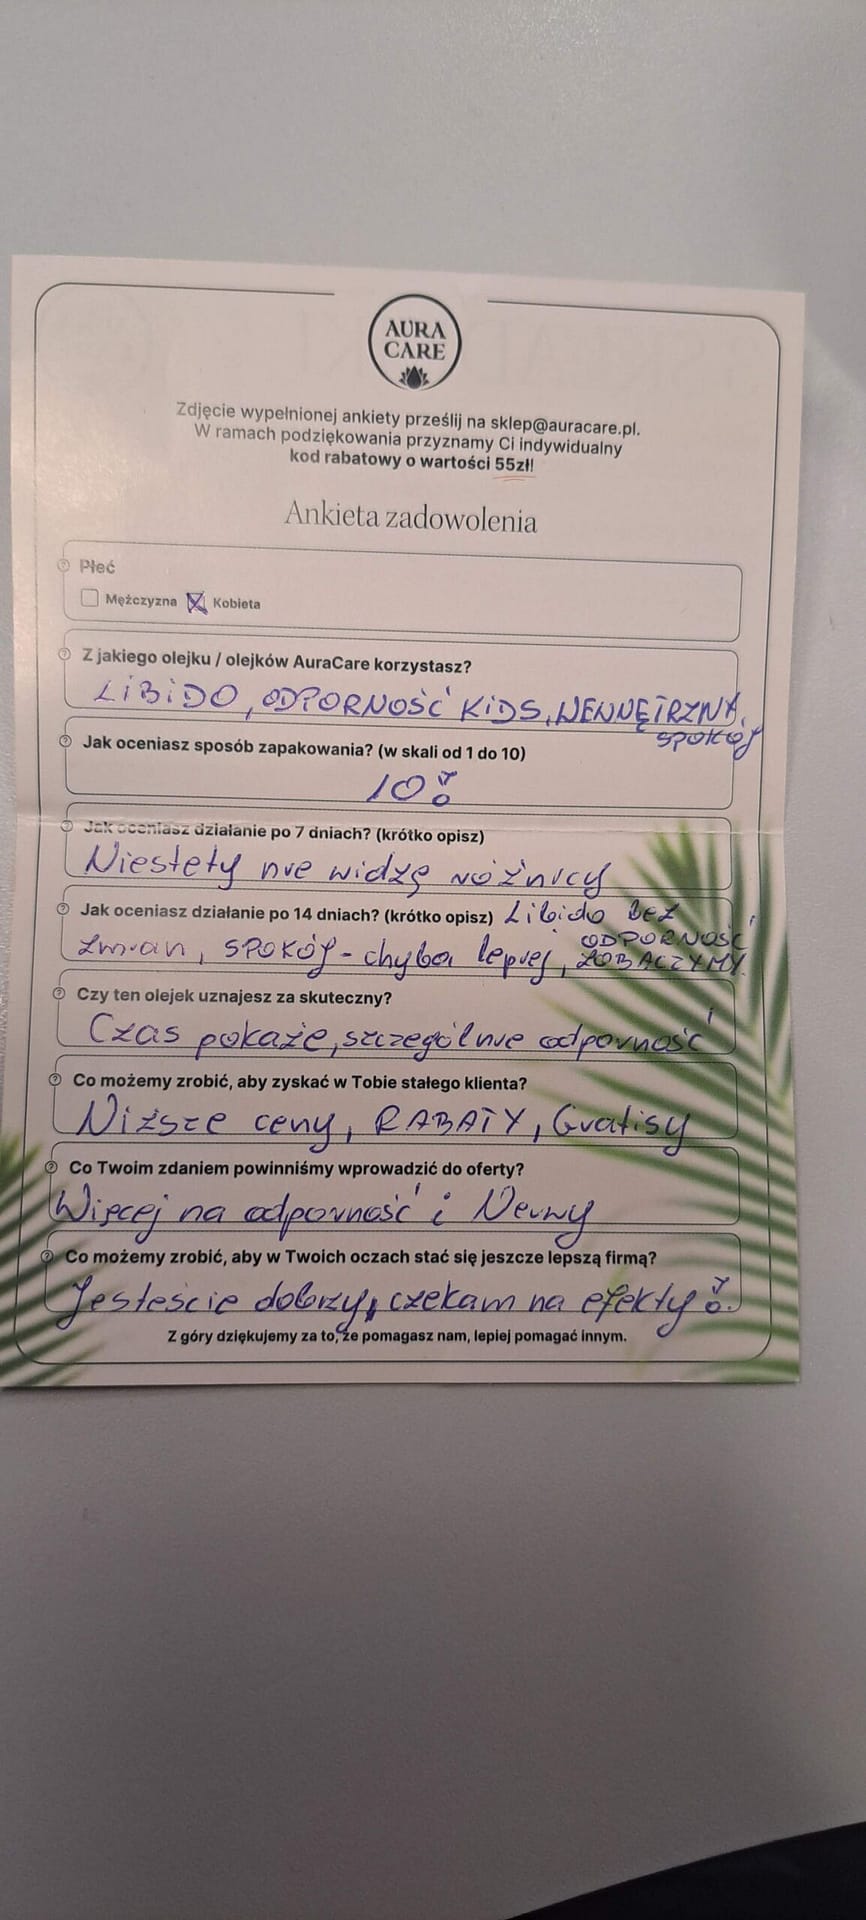 AURA
CARE
Zdjęcie wypełnionej ankiety prześlij na sklep@auracare.pl.
W ramach podziękowania przyznamy Ci indywidualny
kod rabatowy o wartości 55zł!
Ankieta zadowolenia
Płeć
Mężczyzna Kobieta
Z jakiego olejku / olejków AuraCare korzystasz?
LIBIDO, ODPORNOŚĆ KIDS, WEWNĘTRZNY
SPOKÓJ
Jak oceniasz sposób zapakowania? (w skali od 1 do 10)
10!
Jak oceniasz działanie po 7 dniach? (krótko opisz)
Niestety nie widzę różnicy
Jak oceniasz działanie po 14 dniach? (krótko opisz) Libido bez
zmian, SPOKÓJ - chyba lepiej, ODPORNOŚĆ
ZOBACZYMY.
Czy ten olejek uznajesz za skuteczny?
Czas pokaże, szczególnie odporność
Co możemy zrobić, aby zyskać w Tobie stałego klienta?
Niższe ceny, RABATY, Gratisy
Co Twoim zdaniem powinniśmy wprowadzić do oferty?
Więcej na odporność i Nerwy
Co możemy zrobić, aby w Twoich oczach stać się jeszcze lepszą firmą?
Jesteście dobrzy, czekam na efekty!
Z góry dziękujemy za to, że pomagasz nam, lepiej pomagać innym.